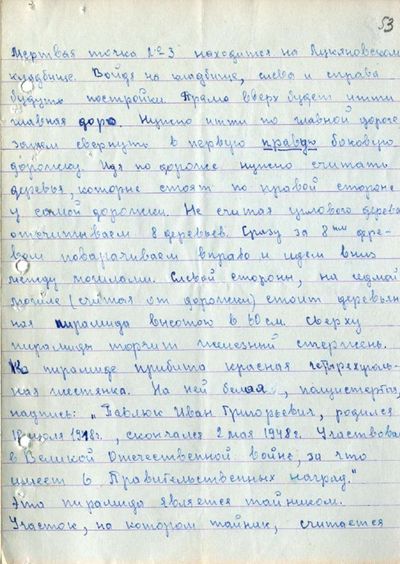 53
Мертвая точка №3 находится на Лукяновском
кладбище. Войдя на кладбище, слева и справа
будут постройки. Прямо вверх будет итти
главная доро. Нужно итти по главной дороге
затем свернуть в первую правую боковую
дорожку. Идя по дорожке нужно считать
деревья, которые стоят по правой стороне
у самой дорожки. Не считая углового дерева
отсчитываем 8 деревьев. Сразу за 8ым дере-
вом поварачиваем вправо и идем вниз
между могилами. С левой стороны, на седмой
могиле (считая от дорожки) стоит деревян-
ная пирамида высотою в 60 см. Сверху
пирамиды торчит железный стержень.
К пирамиде прибита красная четырехуголь-
ная жестянка. На ней белая, полустертая,
надпись: „Павлюк Иван Григорьевич, родился
июля 1918г., скончался 2 мая 1948г. Участвовал
в Великой Отечественной войне, за что
имеет 6 Правительственных наград."
Эта пирамида является тайником.
Участок, на котором тайник, считается